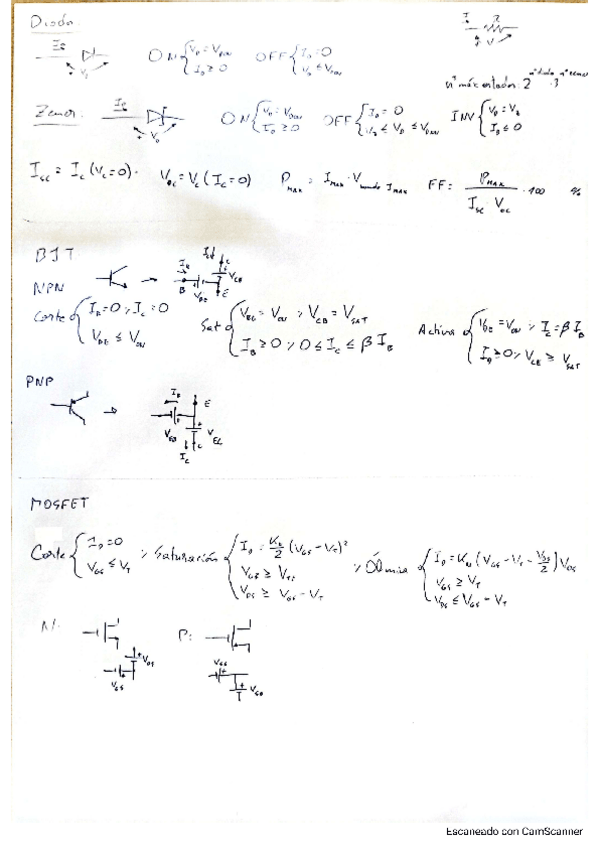 Diodo:
I_D
V_D
ON { V_D = V_DON
I_D ≥ 0
OFF { I_D = 0
V_D ≤ V_DON
I R
V
nº máx estados: 2^nº diodo · 3^nº zener
Zener:
I_D
V_D
ON { V_D = V_DON
I_D ≥ 0
OFF { I_D = 0
≤ V_D ≤ V_DON
INV { V_D = V_z
I_D ≤ 0
I_SC = I_C (V_C = 0) . V_OC = V_C (I_C = 0) P_MAX = I_MAX · V_cuando I_MAX FF: P_MAX / I_SC · V_OC · 100 %
BJT
NPN
I_B B V_BE E C I_C V_CE
Corte { I_B = 0 ; I_C = 0
V_BE ≤ V_ON
Sat { V_BE = V_ON ; V_CE = V_SAT
I_B ≥ 0 ; 0 ≤ I_C ≤ β I_B
Activa { V_BE = V_ON ; I_C = β I_B
I_B ≥ 0 ; V_CE ≥ V_SAT
PNP
I_B E
V_EB V_EC
I_C C
MOSFET
Corte { I_D = 0
V_GS ≤ V_T
; Saturación { I_D = K_n/2 (V_GS - V_T)^2
V_GS ≥ V_T
V_DS ≥ V_GS - V_T
; Óhmica { I_D = K_n (V_GS - V_T - V_DS/2) V_DS
V_GS ≥ V_T
V_DS ≤ V_GS - V_T
N: P:
V_DS V_GS
V_GS V_SD
Escaneado con CamScanner